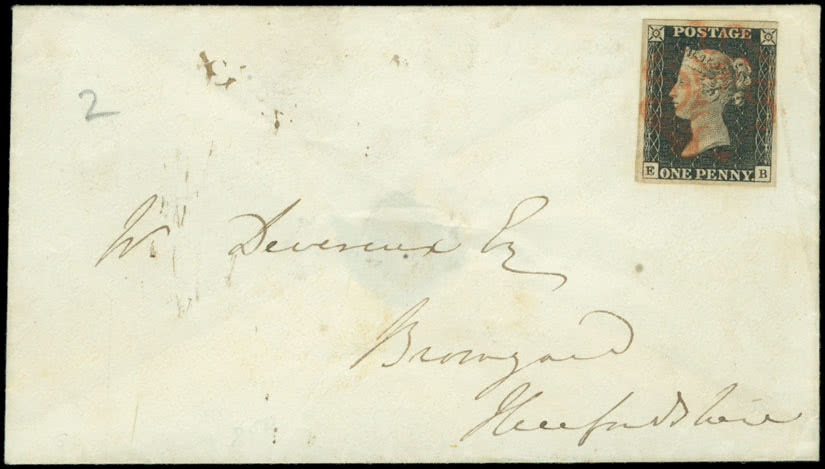 POSTAGE
E ONE PENNY B
2
W. Devereux Esq
Bromyard
Herefordshire